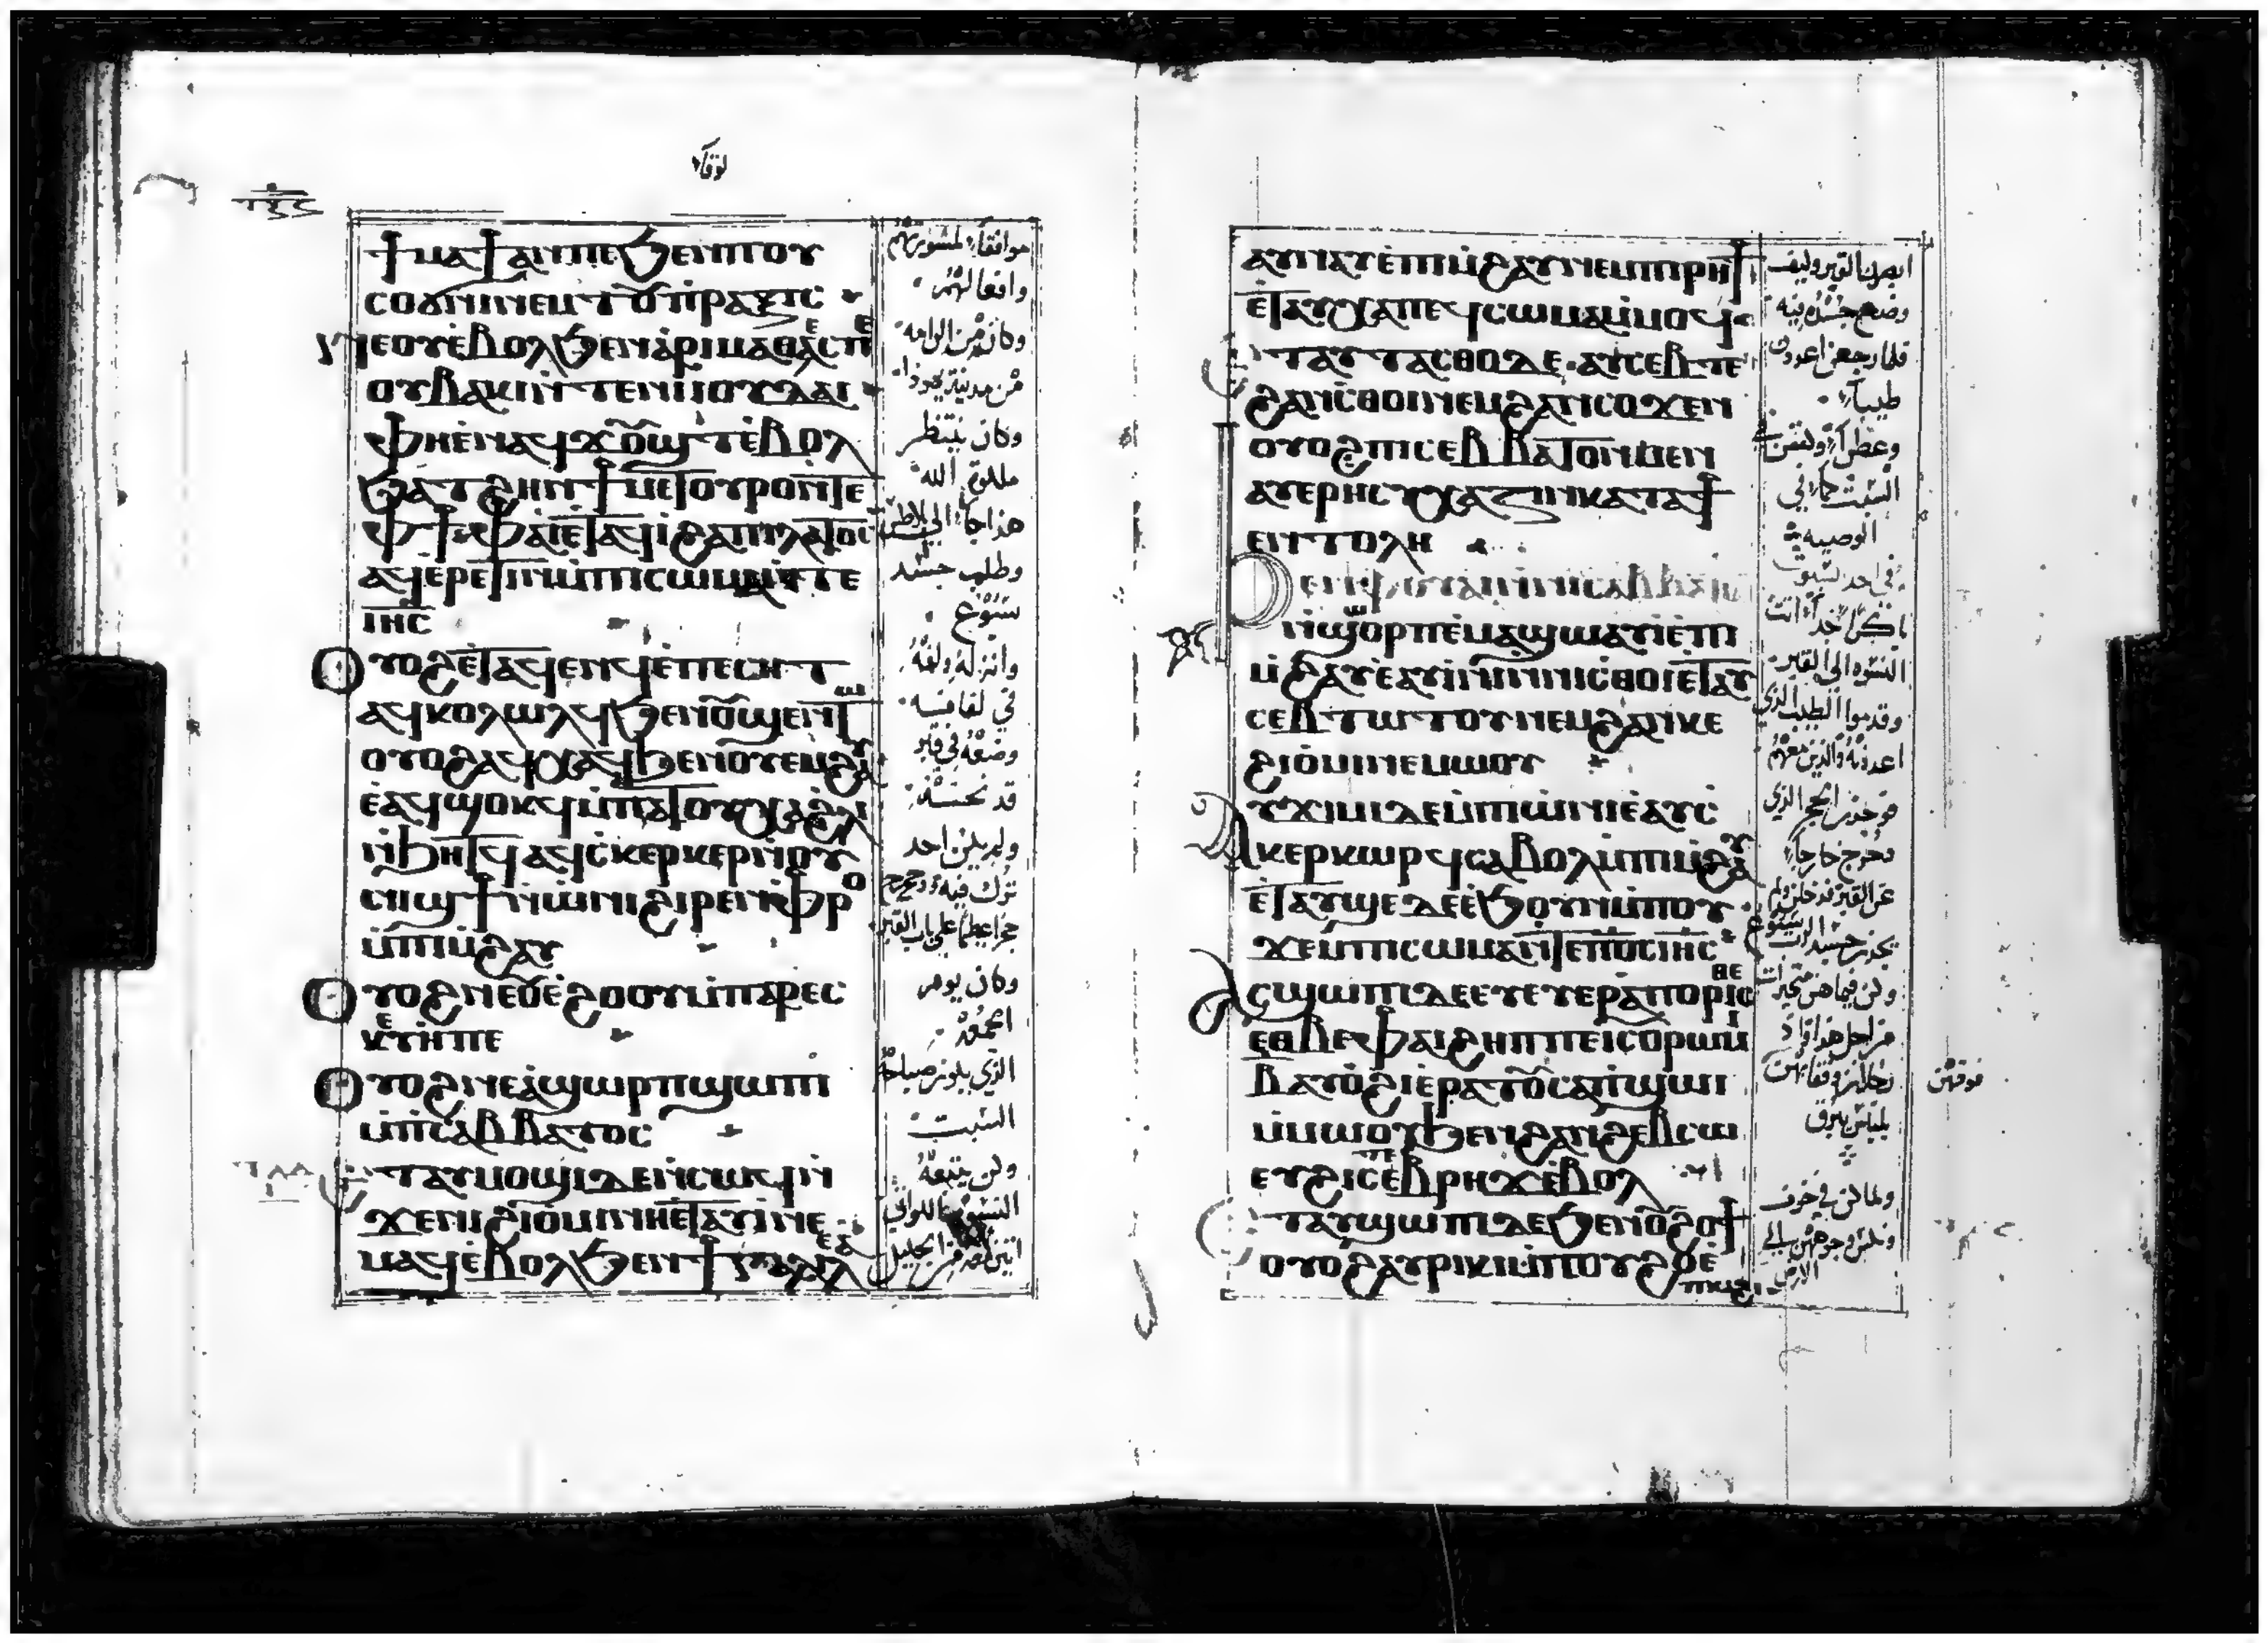 لوقا
ϯⲙⲁϯ ⲁⲛ ⲡⲉ ϧⲉⲛ ⲡⲟⲩ
ⲥⲟϭⲛⲓ ⲛⲉⲙ ⲧⲟⲩⲡⲣⲁⲝⲓⲥ
ⲛⲉ ⲟⲩⲉⲃⲟⲗ ϧⲉⲛ ⲁⲣⲓⲙⲁⲑⲉⲁⲥ ⲡⲉ
ⲟⲩⲃⲁⲕⲓ ⲛⲧⲉ ⲛⲓⲓⲟⲩⲇⲁⲓ
ⲫⲏ ⲉⲛⲁϥϫⲟⲩϣⲧ ⲉⲃⲟⲗ
ϧⲁⲧϩⲏ ⲛϯⲙⲉⲧⲟⲩⲣⲟ ⲛⲧⲉ
ⲫϯ ⲫⲁⲓ ⲉⲧⲁϥⲓ ϩⲁ ⲡⲓⲗⲁⲧⲟⲥ
ⲁϥⲉⲣⲉⲧⲓⲛ ⲙⲡⲓⲥⲱⲙⲁ ⲛⲧⲉ
ⲓⲏⲥ
ⲟⲩⲟϩ ⲉⲧⲁϥⲉⲛϥ ⲉⲡⲉⲥⲏⲧ
ⲁϥⲕⲟⲩⲗⲱⲗϥ ϧⲉⲛ ⲟⲩϣⲉⲛⲧⲱ
ⲟⲩⲟϩ ⲁϥⲭⲁϥ ϧⲉⲛ ⲟⲩⲉⲙϩⲁⲩ
ⲉⲁϥϣⲟⲕϥ ⲙⲡⲁⲧⲟⲩⲭⲁ ϩⲗⲓ
ⲛϧⲏⲧϥ ⲁϥⲥⲕⲉⲣⲕⲉⲣ ⲛⲟⲩ
ⲛⲓϣϯ ⲛⲱⲛⲓ ϩⲓⲣⲉⲛ ⲫⲣⲟ
ⲙⲡⲓⲙϩⲁⲩ
ⲟⲩⲟϩ ⲛⲉ ⲟⲩⲉϩⲟⲟⲩ ⲙⲡⲁⲣⲉⲥ
ⲕⲉⲩⲏ ⲡⲉ
ⲟⲩⲟϩ ⲛⲉ ⲁϣⲱⲣⲡ ϣⲱⲡⲓ
ⲙⲡⲥⲁⲃⲃⲁⲧⲟⲥ
ⲉⲧⲁⲩⲙⲟϣⲓ ⲇⲉ ⲛⲥⲱϥ ⲛ
ϫⲉ ⲛⲓϩⲓⲟⲙⲓ ⲛⲏ ⲉⲧⲁⲩⲓ ⲛⲉ
ⲙⲁϥ ⲉⲃⲟⲗ ϧⲉⲛ ϯⲅⲁⲗⲓⲗⲉⲁ
موافقا لمشورتهم
وافعالهم
وكان من الرامه
من مدينة يهوذا
وكان ينتظر
ملكوت الله
هذا جاء الى بيلاطس
وطلب جسد
يسوع
وانزله ولفه
في لفافه
وضعه في قبر
قد نحته
ولم يكن احد
ترك فيه ودحرج
حجرا عظيما على باب القبر
وكان يوم
الجمعه
الذي يكون صباحه
السبت
وكن يتبعنه
النسوه اللواتي
اتين معه من الجليل
ⲁⲩⲛⲁⲩ ⲉⲡⲓⲙϩⲁⲩ ⲛⲉⲙ ⲡⲓⲣⲏϯ
ⲉⲧⲁⲩⲭⲁ ⲡⲉϥⲥⲱⲙⲁ ⲙⲙⲟϥ
ⲉⲧⲁⲩⲧⲁⲥⲑⲟ ⲇⲉ ⲁⲩⲥⲉⲃⲧⲉ
ϩⲁⲛⲥⲑⲟⲓ ⲛⲉⲙ ϩⲁⲛⲥⲟϫⲉⲛ
ⲟⲩⲟϩ ⲡⲓⲥⲁⲃⲃⲁⲧⲟⲛ ⲙⲉⲛ
ⲁⲩⲉⲣⲏⲥⲩⲭⲁⲍⲓⲛ ⲕⲁⲧⲁ ϯ
ⲉⲛⲧⲟⲗⲏ
ϧⲉⲛ ⲫⲟⲩⲁⲓ ⲛⲛⲓⲥⲁⲃⲃⲁⲧⲟⲛ
ⲛϣⲟⲣⲡ ⲉⲙⲁϣⲱ ⲁⲩⲓ ⲉⲡⲓ
ⲙϩⲁⲩ ⲉⲁⲩⲓⲛⲓ ⲛⲛⲓⲥⲑⲟⲓ ⲉⲧⲁⲩ
ⲥⲉⲃⲧⲱⲧⲟⲩ ⲛⲉⲙ ϩⲁⲛⲕⲉ
ϩⲓⲟⲙⲓ ⲛⲉⲙⲱⲟⲩ
ⲁⲩϫⲓⲙⲓ ⲇⲉ ⲙⲡⲓⲱⲛⲓ ⲉⲁⲩⲥ
ⲕⲉⲣⲕⲱⲣϥ ⲥⲁⲃⲟⲗ ⲙⲡⲓⲙϩⲁⲩ
ⲉⲧⲁⲩϣⲉ ⲇⲉ ⲉϧⲟⲩⲛ ⲙⲡⲟⲩ
ϫⲉⲙ ⲡⲓⲥⲱⲙⲁ ⲛⲧⲉ ⲡⲟⲥ ⲓⲏⲥ
ⲁⲥϣⲱⲡⲓ ⲇⲉ ⲉⲩⲉⲣⲁⲡⲟⲣⲓⲥⲑⲉ
ⲉⲑⲃⲉ ⲫⲁⲓ ϩⲏⲡⲡⲉ ⲓⲥ ⲣⲱⲙⲓ
ⲃ ⲁⲩⲟϩⲓ ⲉⲣⲁⲧⲟⲩ ⲥⲁⲡϣⲱⲓ
ⲙⲙⲱⲟⲩ ϧⲉⲛ ϩⲁⲛϩⲉⲃⲥⲱ
ⲉⲩϩⲓⲥⲉⲧⲉⲃⲣⲏϫ ⲉⲃⲟⲗ
ⲉⲧⲁⲩϣⲱⲡⲓ ⲇⲉ ϧⲉⲛ ⲟⲩϩⲟϯ
ⲟⲩⲟϩ ⲁⲩⲣⲓⲕⲓ ⲙⲡⲟⲩϩⲟ ⲉ
ⲡⲕⲁϩⲓ
ابصرنا القبر وكيف
وضع جسده فيه
فلما رجعن اعددن
طيبا
وعطرا وكففن في
السبت كما في
الوصيه
في احد السبوت
باكرا جدا اتت
النسوه الى القبر
وقدموا الطيب الذي
اعددنه والذين معهم
فوجدن الحجر الذي
دحرج خارجا
عن القبر فدخلن ولم
يجدن جسد الرب يسوع
وكن فيما هن متحيرات
من اجل هذا اذا
رجلان وقفا بهن
فوقهن
بلباس يبرق
ولما كن في خوف
ونكسن وجوههن الى
الارض